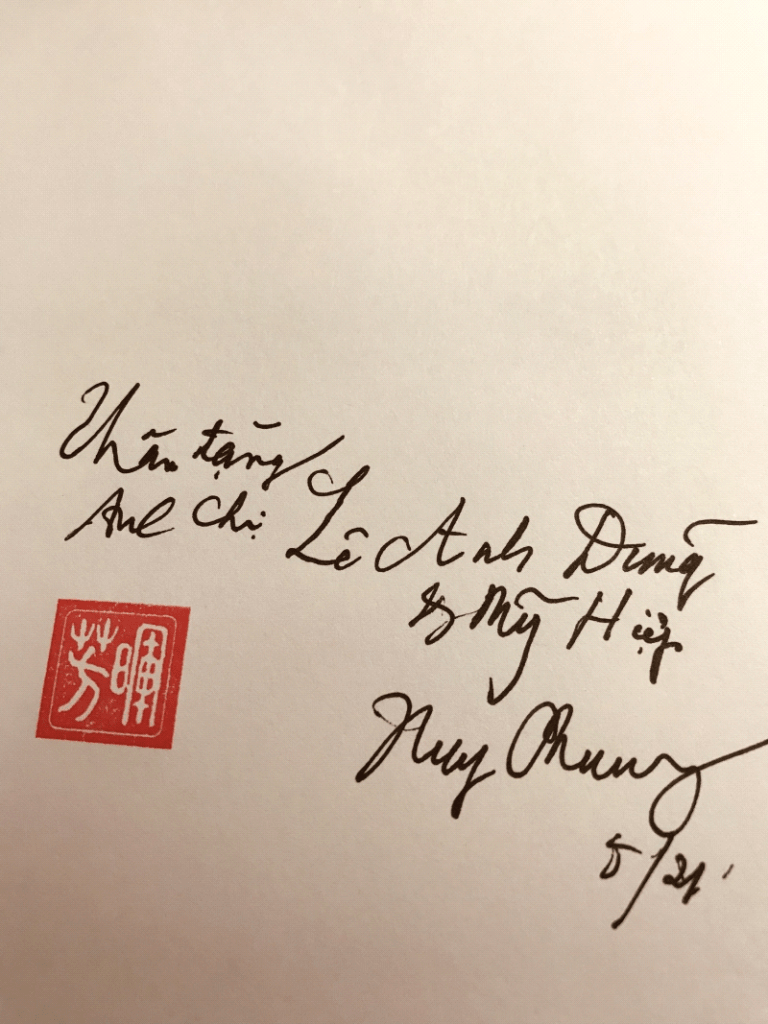 Thân tặng
Anh Chị Lê Anh Dũng
& Mỹ Hiệp
Huy Phương
5/21
暉芳